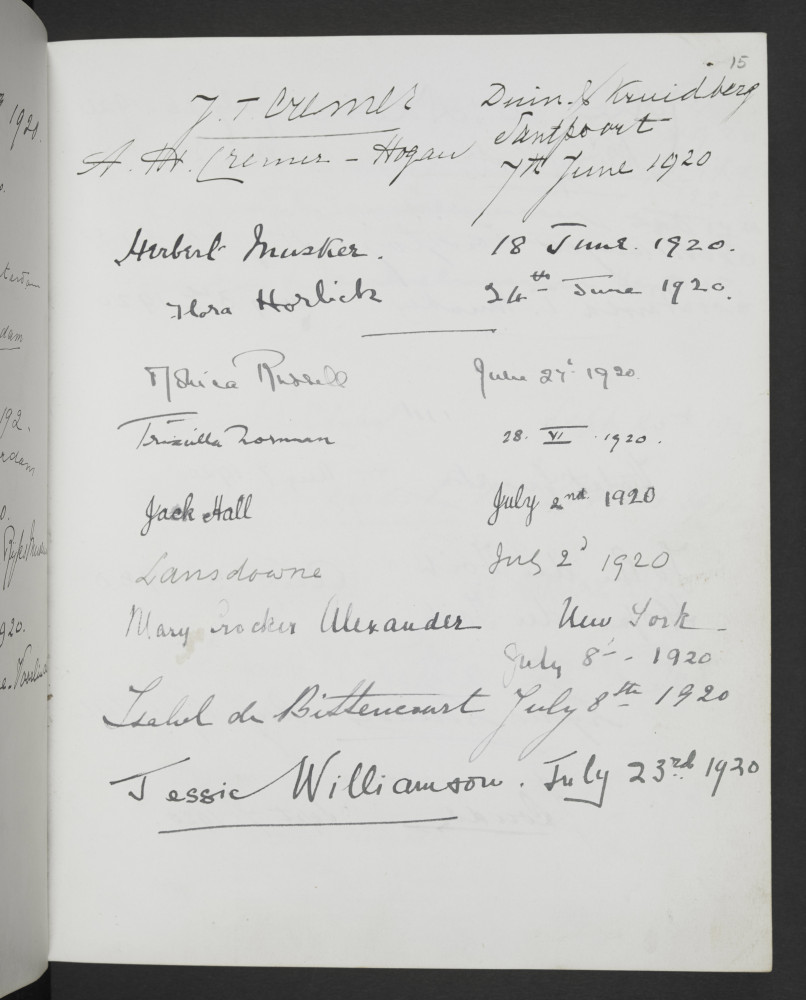 15
J. T. Cremer Duin & Kruidberg
Santpoort
A. H. Cremer - Hogan 7th June 1920
Herbert Musker. 18 June. 1920.
Flora Horlick 24th June 1920.
Monica Russell June 27. 1920
Priscilla Norman 28. VI . 1920.
Jack Hall July 2nd 1920
Lansdowne July 2d 1920
Mary Crocker Alexander New York
July 8 - 1920
Isabel de Bittencourt July 8th 1920
Jessie Williamson. July 23rd 1920
1920.
dam
192.
rdam
920.